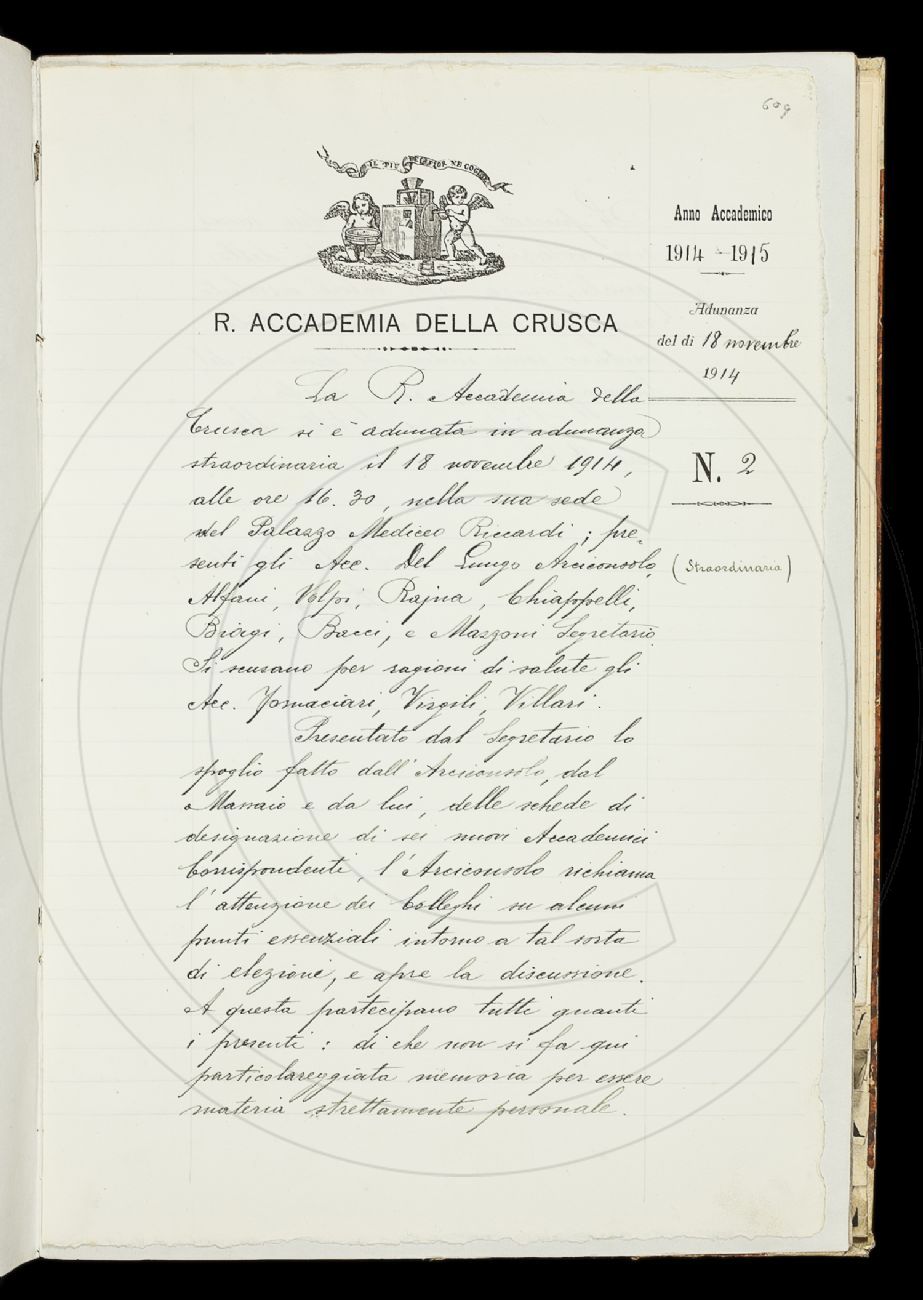 609
IL PIÙ BEL FIOR NE COGLIE
Anno Accademico
1914 - 1915
Adunanza
del dì 18 novembre
1914
N. 2
(Straordinaria)
R. ACCADEMIA DELLA CRUSCA
La R. Accademia della
Crusca si è adunata in adunanza
straordinaria il 18 novembre 1914,
alle ore 16.30, nella sua sede
nel Palazzo Mediceo Riccardi; pre-
senti gli Acc. Del Lungo Arciconsolo,
Alfani, Volpi, Rajna, Chiappelli,
Biagi, Bacci, e Mazzoni Segretario.
Si scusano per ragioni di salute gli
Acc. Fornaciari, Virgili, Villari.
Presentato dal Segretario lo
spoglio fatto dall'Arciconsolo, dal
Massaio e da lui, delle schede di
designazione di sei nuovi Accademici
Corrispondenti, l'Arciconsolo richiama
l'attenzione dei Colleghi su alcuni
punti essenziali intorno a tal sorta
di elezioni, e apre la discussione.
A questa partecipano tutti quanti
i presenti: di che non si fa qui
particolareggiata memoria per essere
materia strettamente personale.